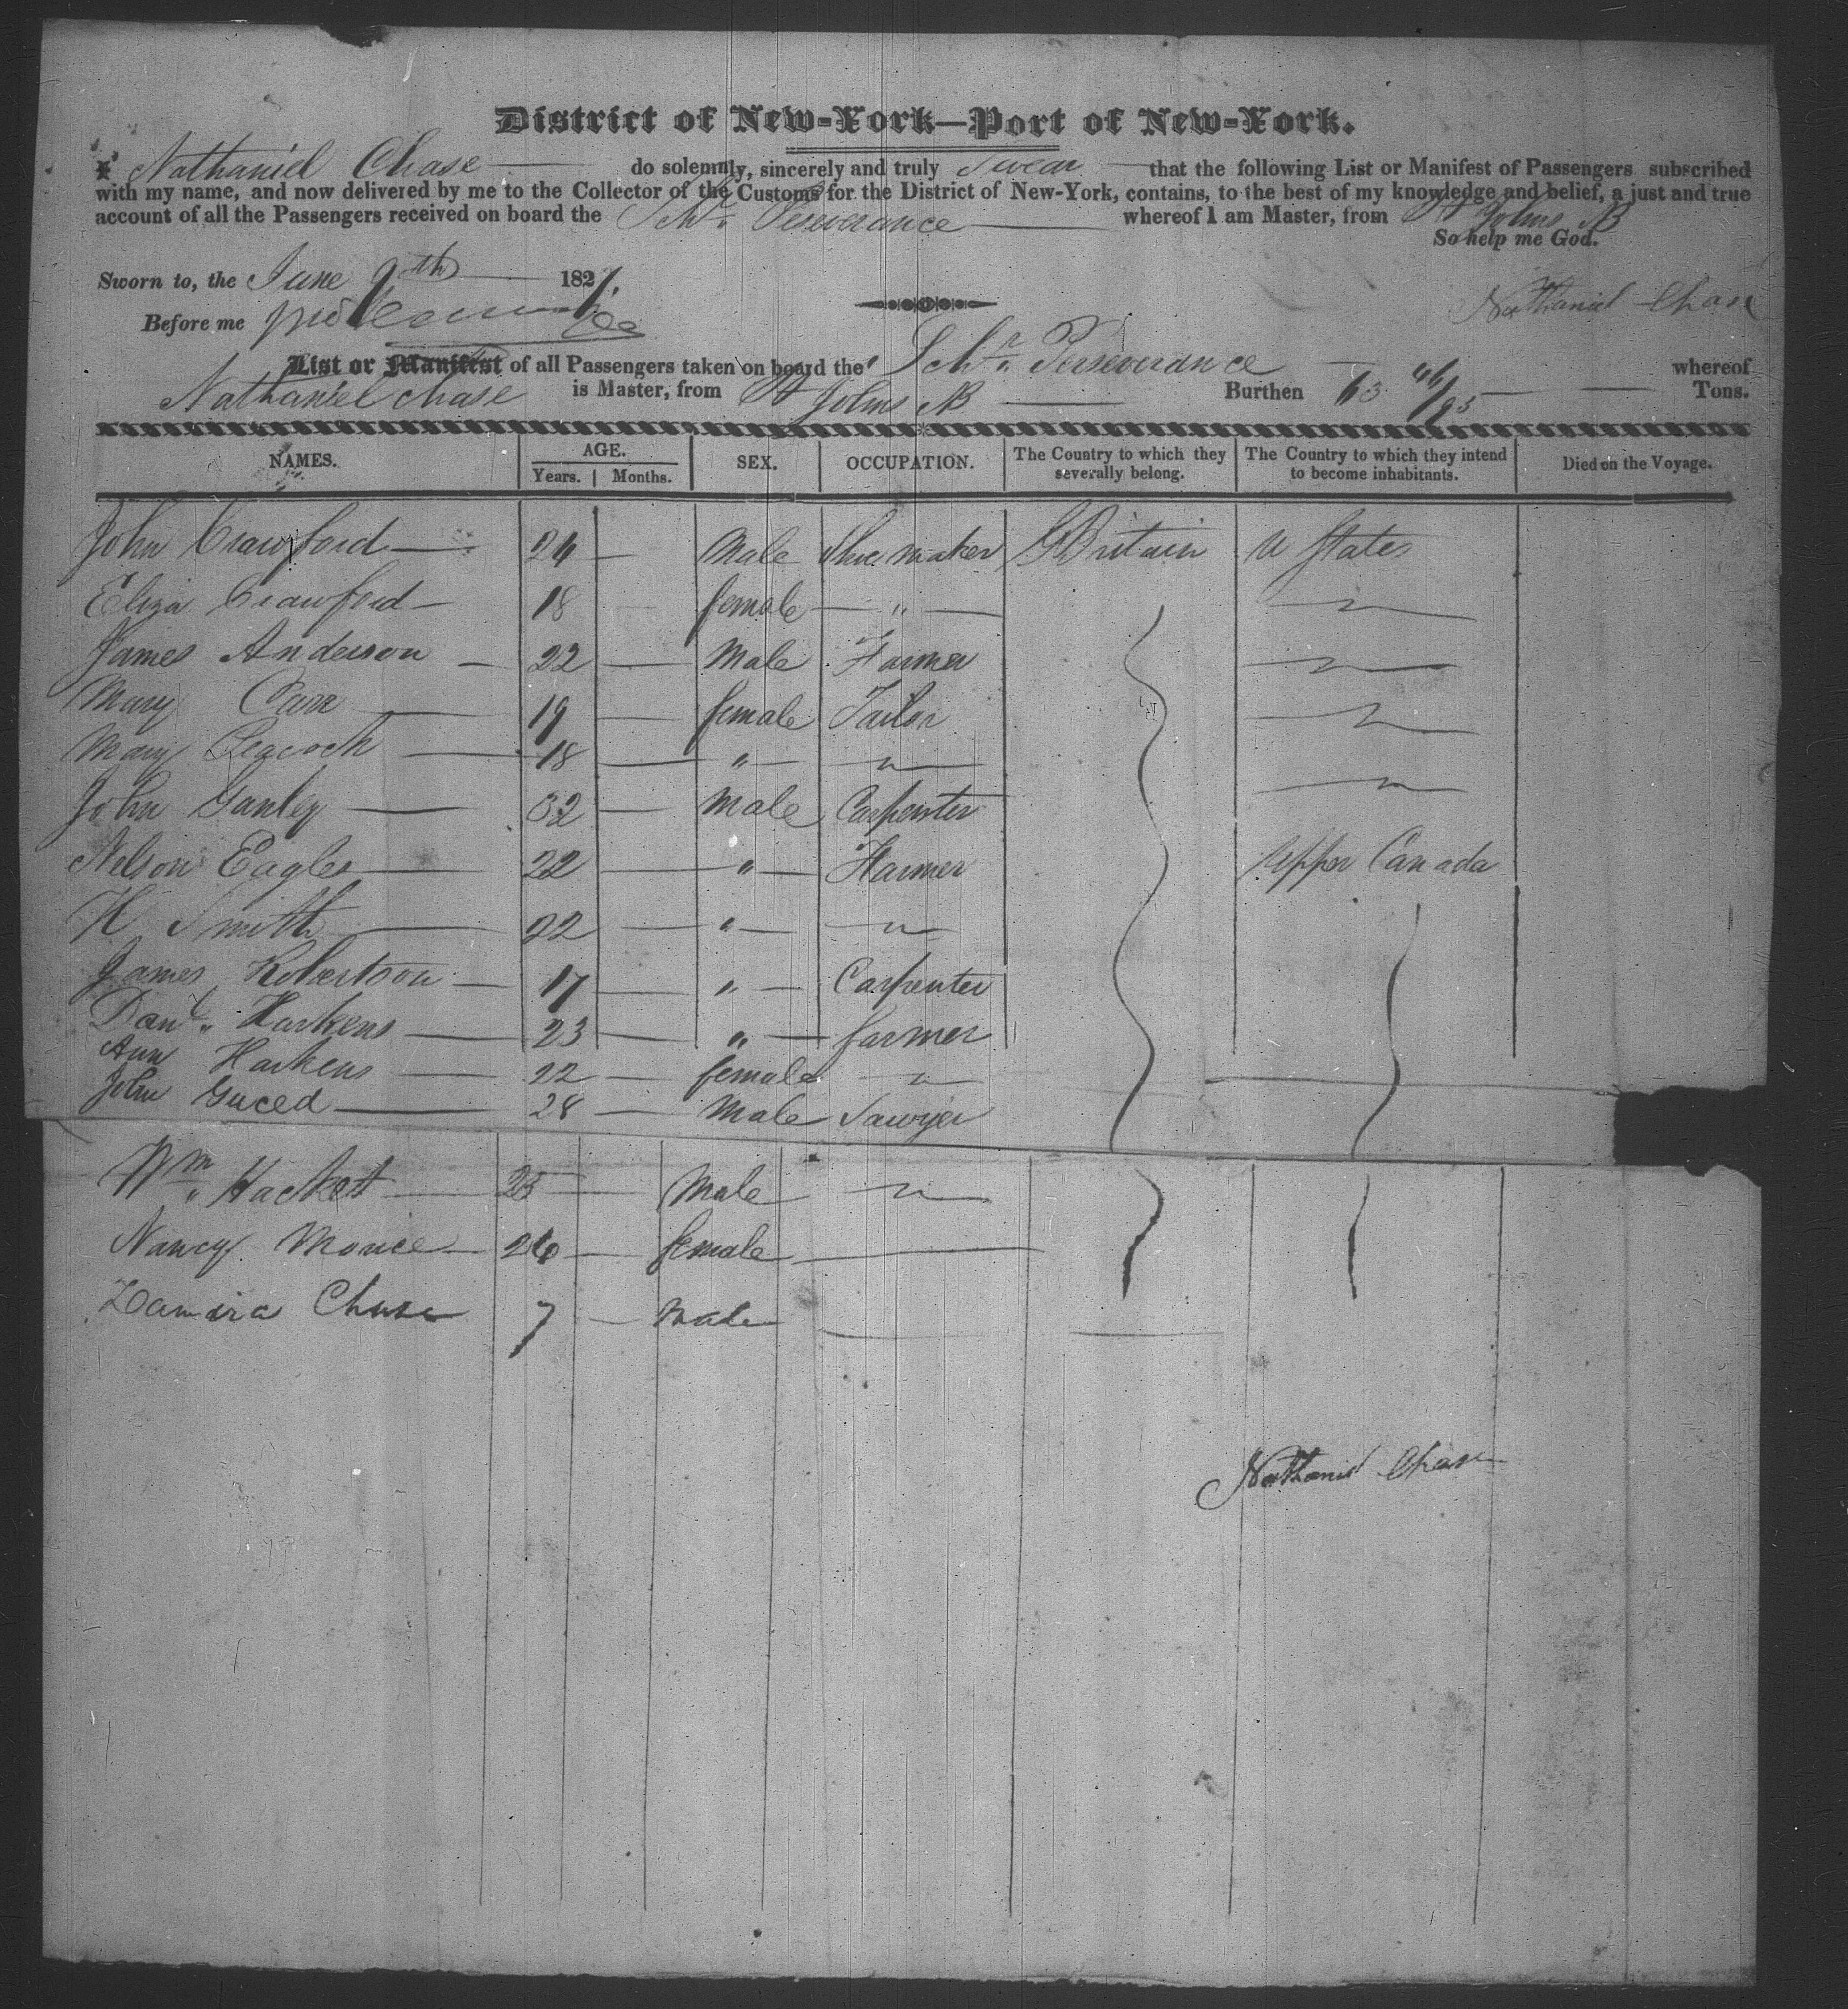 District of New-York—Port of New-York.
I Nathaniel Chase do solemnly, sincerely and truly Swear that the following List or Manifest of Passengers subscribed
with my name, and now delivered by me to the Collector of the Customs for the District of New-York, contains, to the best of my knowledge and belief, a just and true
account of all the Passengers received on board the Schr. Perseverance whereof I am Master, from St Johns NB
So help me God.
Sworn to, the June 9th 1827.
Nathaniel Chase
Before me
List or Manifest of all Passengers taken on board the Schr. Perseverance whereof
Nathaniel Chase is Master, from St Johns NB Burthen 63 /95 Tons.
NAMES. AGE. SEX. OCCUPATION. The Country to which they severally belong. The Country to which they intend to become inhabitants. Died on the Voyage.
Years. Months.
John Crawford — 24 — Male Shoe maker G Britain U States
Eliza Crawford — 18 — female — " —
James Anderson — 22 — Male Farmer
Mary Carr — 19 — female Tailor
Mary Leacock — 18 — " —
John Ganley — 32 — Male Carpenter
Nelson Eagles — 22 — " — Farmer Upper Canada
H Smith — 22 — " —
James Robertson — 17 — " — Carpenter
Danl. Harkens — 23 — " — farmer
Ann Harkens — 22 — female
John — 28 — Male Sawyer
Wm. Hacket — 25 — Male
Nancy — 26 — female
Chase 7 — Male
Nathaniel Chase